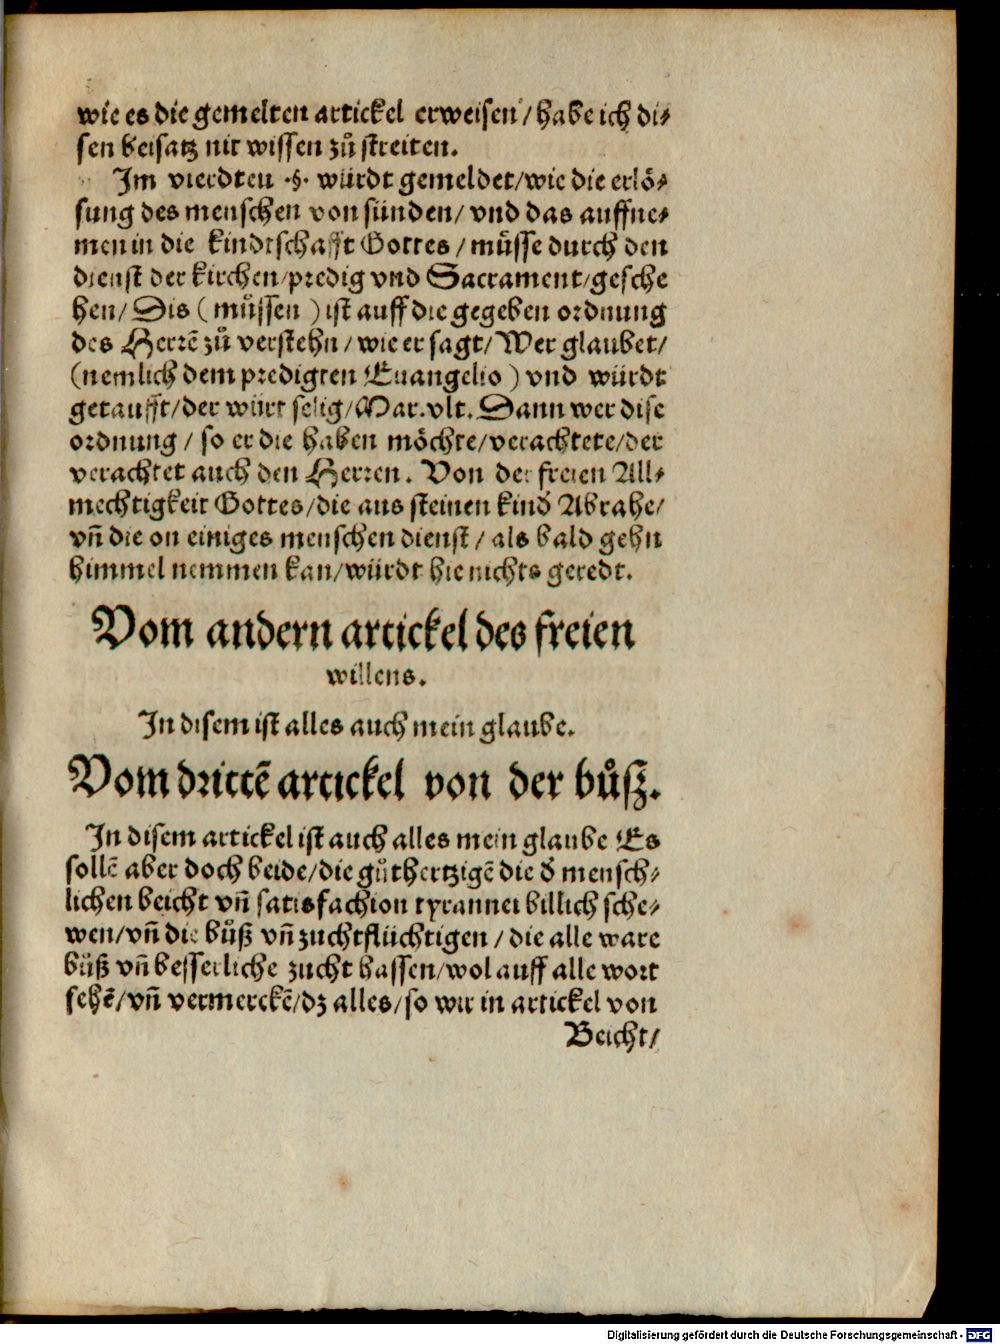 wie es die gemelten artickel erweisen / habe ich di⸗
sen beisatz nit wissen zů streiten.
Im vierdten ·§· würdt gemeldet / wie die erlö⸗
sung des menschen von sünden / vnd das auffne⸗
men in die kindtschafft Gottes / můsse durch den
dienst der kirchen / predig vnd Sacrament / gesche
hen / Dis ( müssen ) ist auff die gegeben ordnung
des Herrẽ zů verstehn / wie er sagt / Wer glaubet /
(nemlich dem predigten Euangelio ) vnd würdt
getaufft / der würt selig / Mar. vlt. Dann wer dise
ordnung / so er die haben möchte / verachtete / der
verachtet auch den Herren. Von der freien All⸗
mechtigkeit Gottes / die aus steinen kinđ Abrahe /
vñ die on einiges menschen dienst / als bald gehn
himmel nemmen kan / würdt hie nichts geredt.
Vom andern artickel des freien
willens.
In disem ist alles auch mein glaube.
Vom drittẽ artickel von der bůsz.
In disem artickel ist auch alles mein glaube Es
sollẽ aber doch beide / die gůthertzigẽ die đ mensch⸗
lichen beicht vñ satisfachion tyrannei billich sche⸗
wen / vñ die bůß vñ zuchtflüchtigen / die alle ware
bůß vñ besserliche zucht hassen / wol auff alle wort
sehẽ / vñ vermerckẽ / dz alles / so wir in artickel von
Beicht /
Digitalisierung gefördert durch die Deutsche Forschungsgemeinschaft - DFG